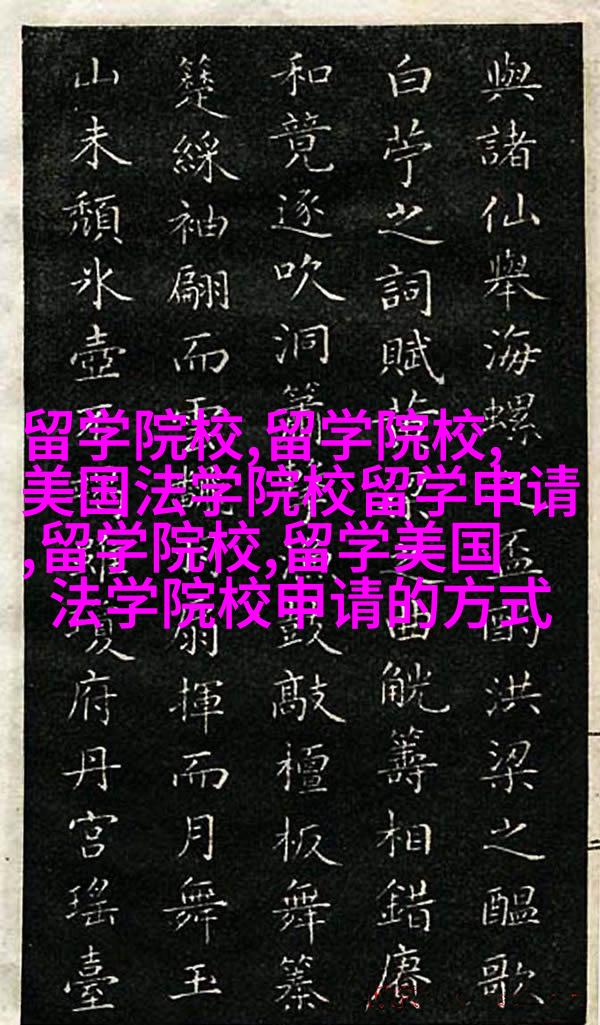 與諸仙舉海螺盃酌洪梁之醖歌
白苧之詞賦之曲觥籌相錯賡
和竟逐吹洞簫鼓敲檀板舞
綵袖翩而雲扇揮而月舞玉
山未頹氷壺瓊府丹宮瑤臺
留学院校,留学院校,
美国法学院校留学申请
,留学院校,留学美国
法学院校申请的方式